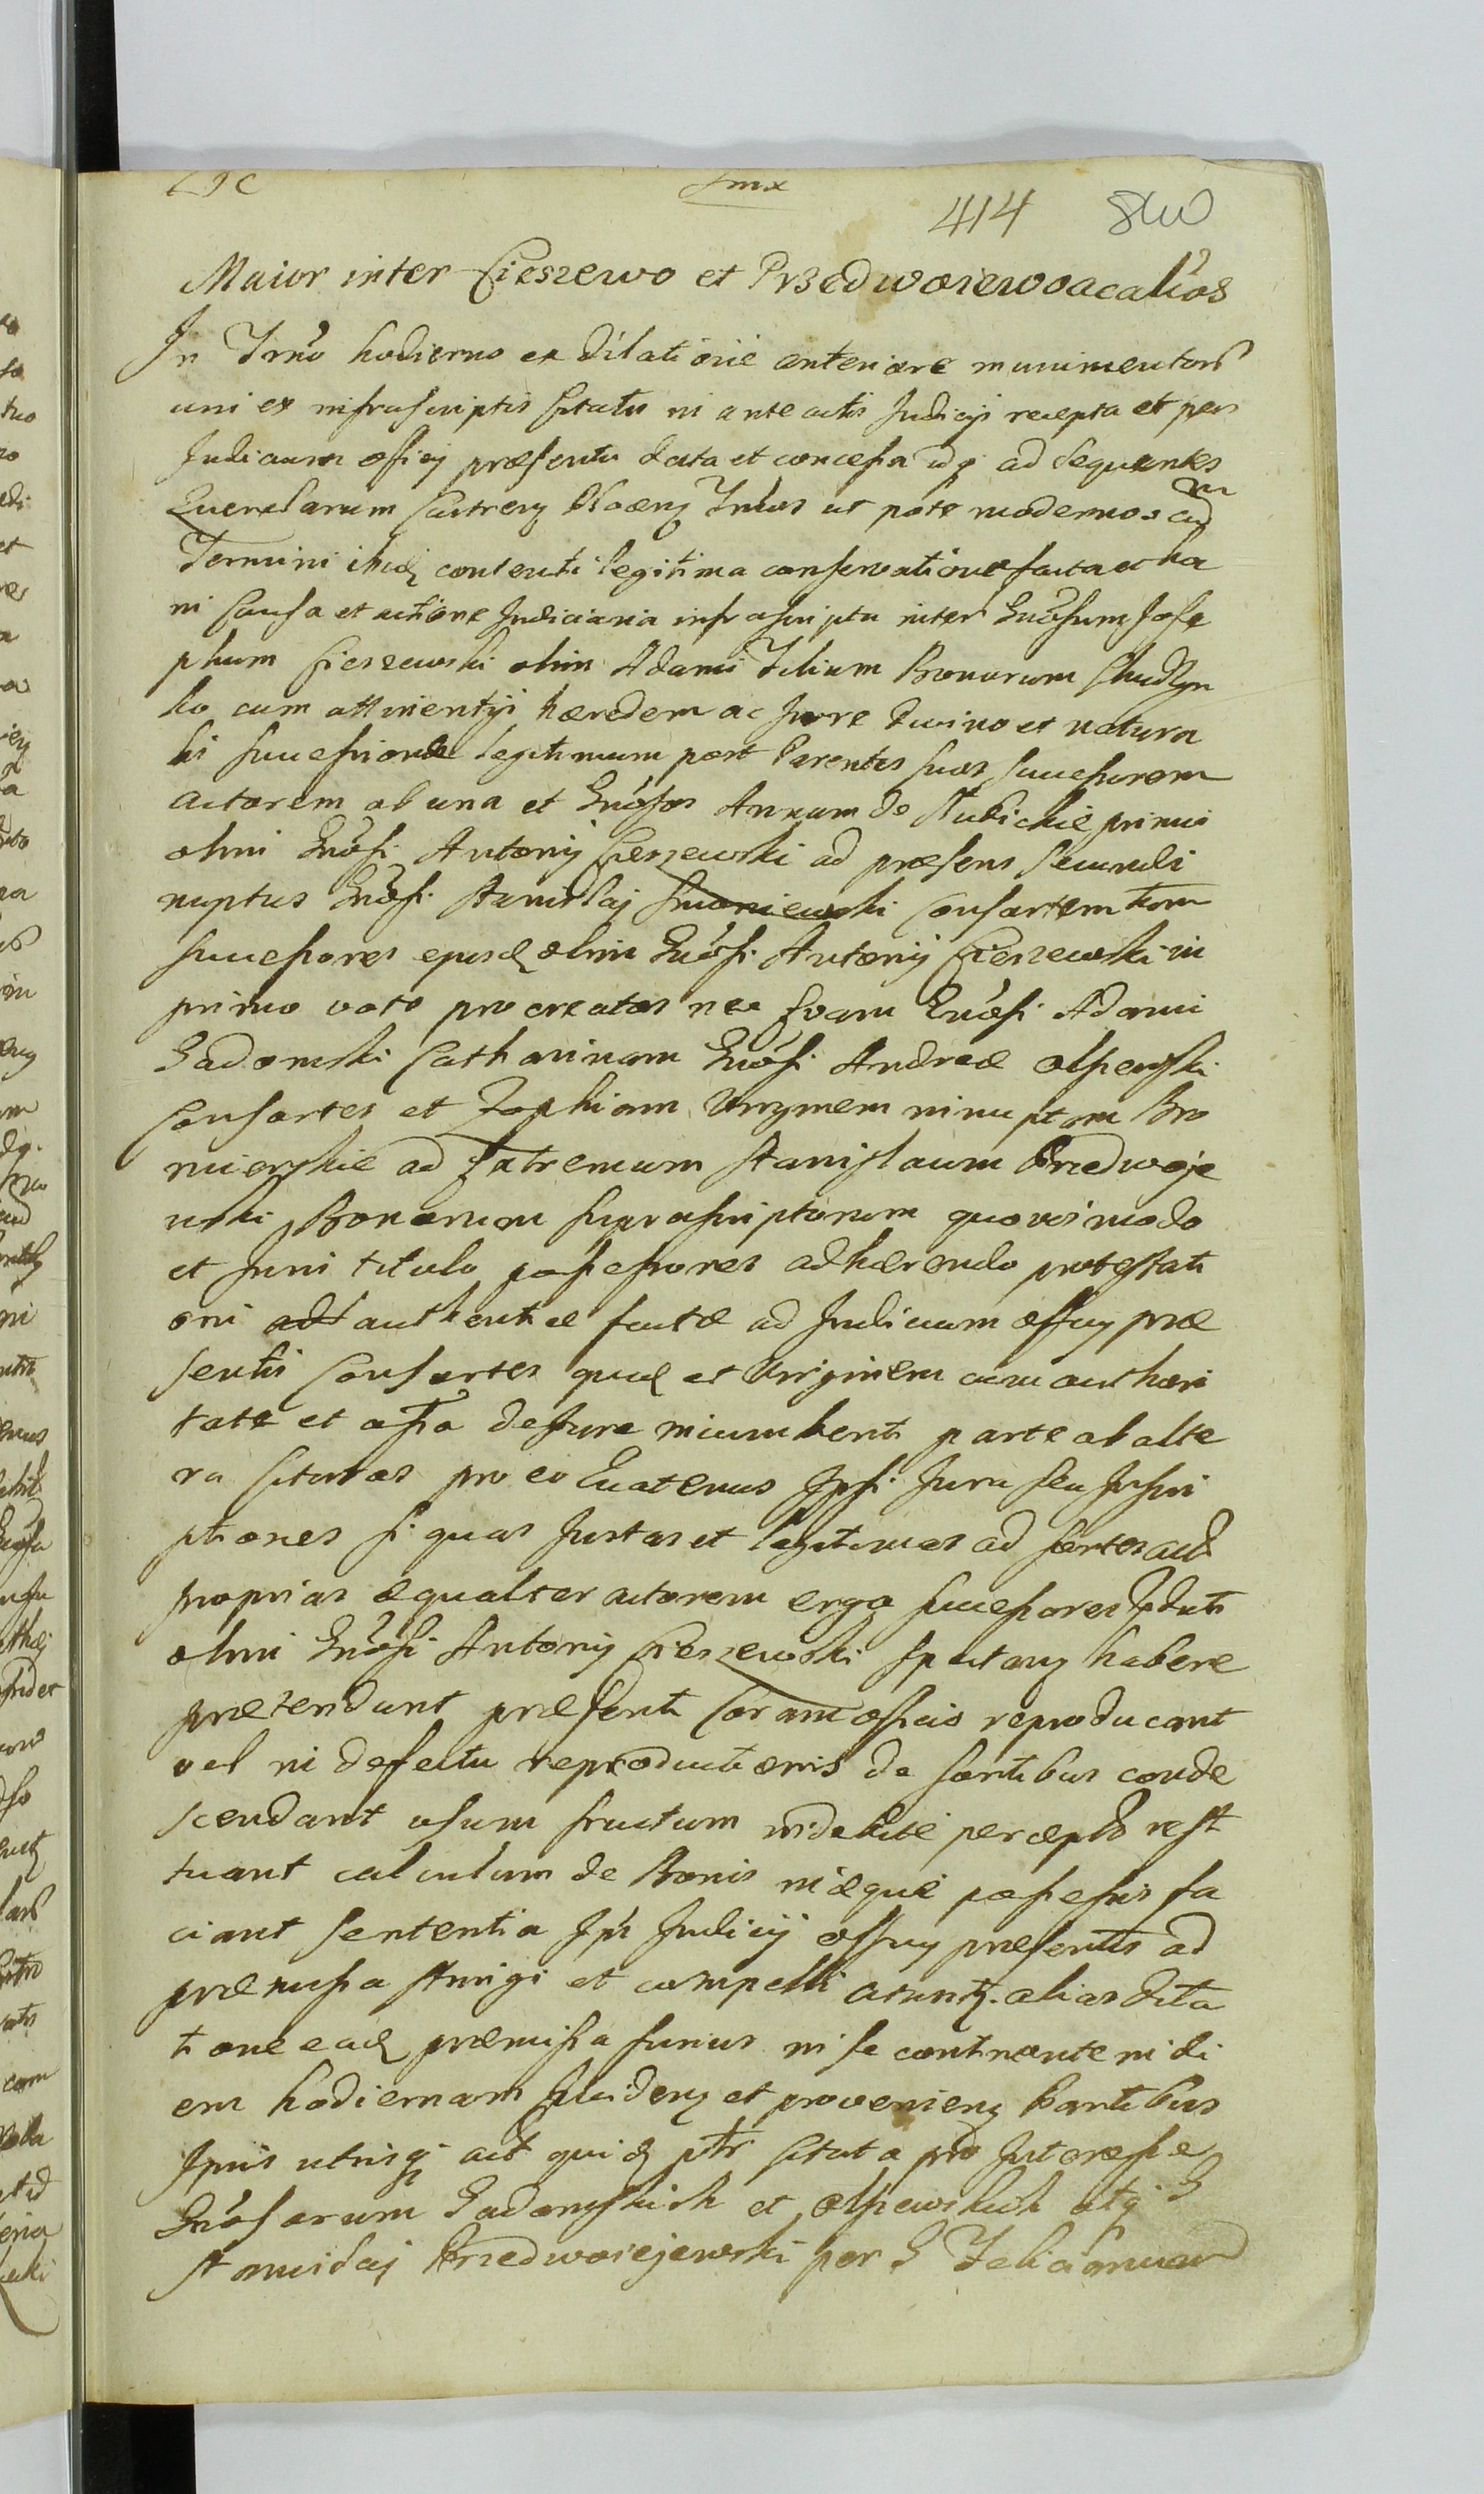 414 840
Maior inter Cieszewo et Przedwoiewo ac alios
In Trno hodierno ex dilatione anteriore munimentorum
uni ex infrascriptis Citatis in ante actis Judicijs recepta et per
Judicium officij præsentis data et concessa idq ad sequentes
Querelarum Castren Plocen Trnos ut pote modernos cum
Termini ibidem contenti legitima conservatione facta
in Causa et actione Judiciaria infrascripta inter Gnosum Jose
phum Cieszewski olim Adami Filium Bonorum Chudzyn
ko cum attinentijs hæredem ac Jure Divino et natura
li successione legitimum post Parentes suos successorem
actorem ab una et Gnosos Annam de primi
olim Gnosi Antonij Cieszewski ad præsens secundi
nuptus Gnosi Stanislaj Consortem tum
successores ejusd olim Gnosi Antonij Cieszewski in
primo voto procreatos nec Evam Gnosi Adami
Gadomski Catharinam Gnosi Andreæ Olszewski
Consortes et Zophiam Virginem innuptam Bro
mierskie ad Extremum Stanislaum Przedwoje
wski Bonorum suprascriptorum quovis modo
et Juris titulo possessores adhærendo protestati
oni authenticæ factæ ad Judicium officij præ
sentis Consortes quid et Virginem cum authori
tate et assa de Jure incumbenti parte ab alte
ra Citatos pro eo Quatenus Ipsi Jura seu Inscri
ptiones si quas Justas et legitimas ad sortes
proprias æqualiter actorem erga successores
olim Gnosi Antonij Cieszewski spectan habere
prætendunt præsenti Coram officio reproducant
vel in defectu reproductionis de sortibus conde
scendant usum fructum indebite perceptum resti
tuant calculum de Bonis inique possessis fa
ciant sententia Ipsi Judicij officij præsentis ad
præmissa stringi et compelli alias Dila
tione ead præmissa furius in se continente in di
em hodiernam inciden et provenien Partibus
Ipsis utrisq act quid ptr Citata pro Interesse
Gnosorum Gadomskich et Olszewskich atq G
Stanislaj Przedwoiejewski per G